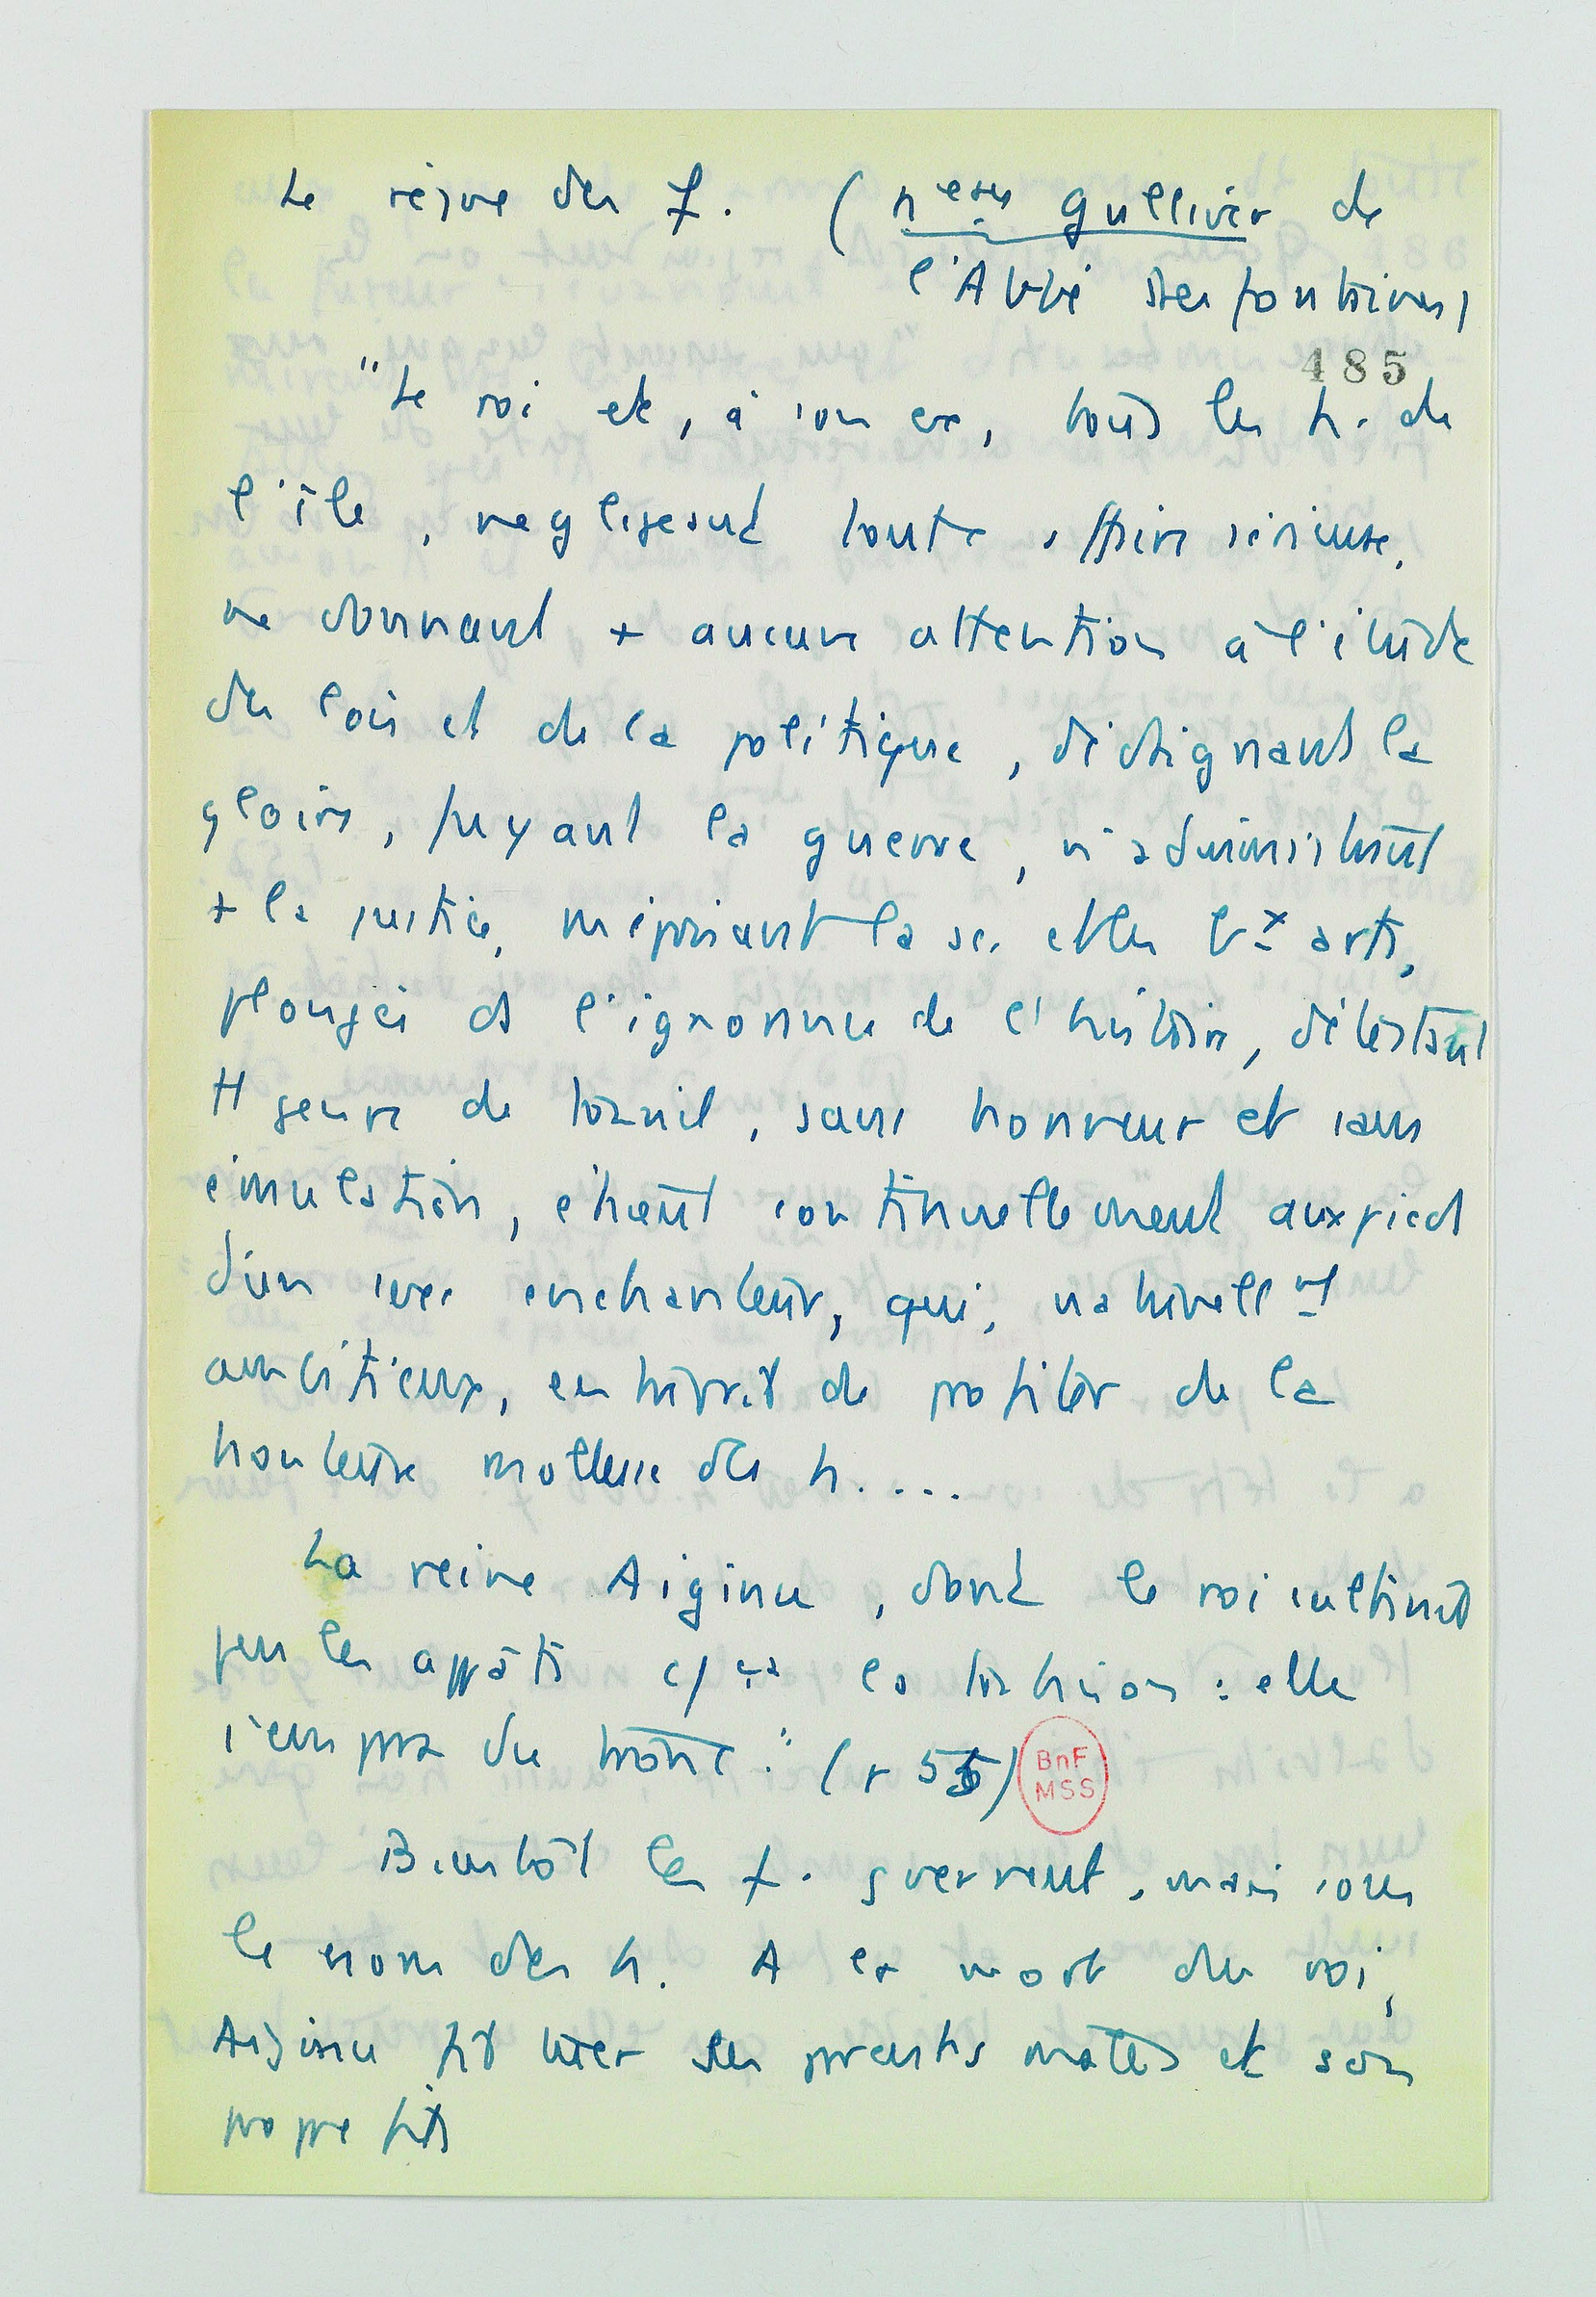 Le règne des f. (neau gulliver de
l'Abbé Desfontaines)
485
"Le roi et, à son ex, tous les h. de
l'île, negligeant toute affaire sérieuse,
ne donnant + aucune attention à l'étude
des lois et de la politique, dédaignant la
gloire, fuyant la guerre, n'administrant
+ la justice, méprisant la sc. et les bx arts,
plongés ds l'ignorance de l'histoire, détestant
tt genre de travail, sans honneur et sans
émulation, étaient continuellement aux pieds
d'un sexe enchanteur, qui, naturellmt
ambitieux, entreprit de profiter de la
honteuse mollesse des h....
La reine Aiginu, dont le roi
les appâts la trahison : elle
s'empara du trône." (p 55)
BnF
MSS
Bientôt les f. guerrent, mais sous
le nom des h. A la mort du roi,
Aiginu fit tuer ses parents mâles et son
propre fils